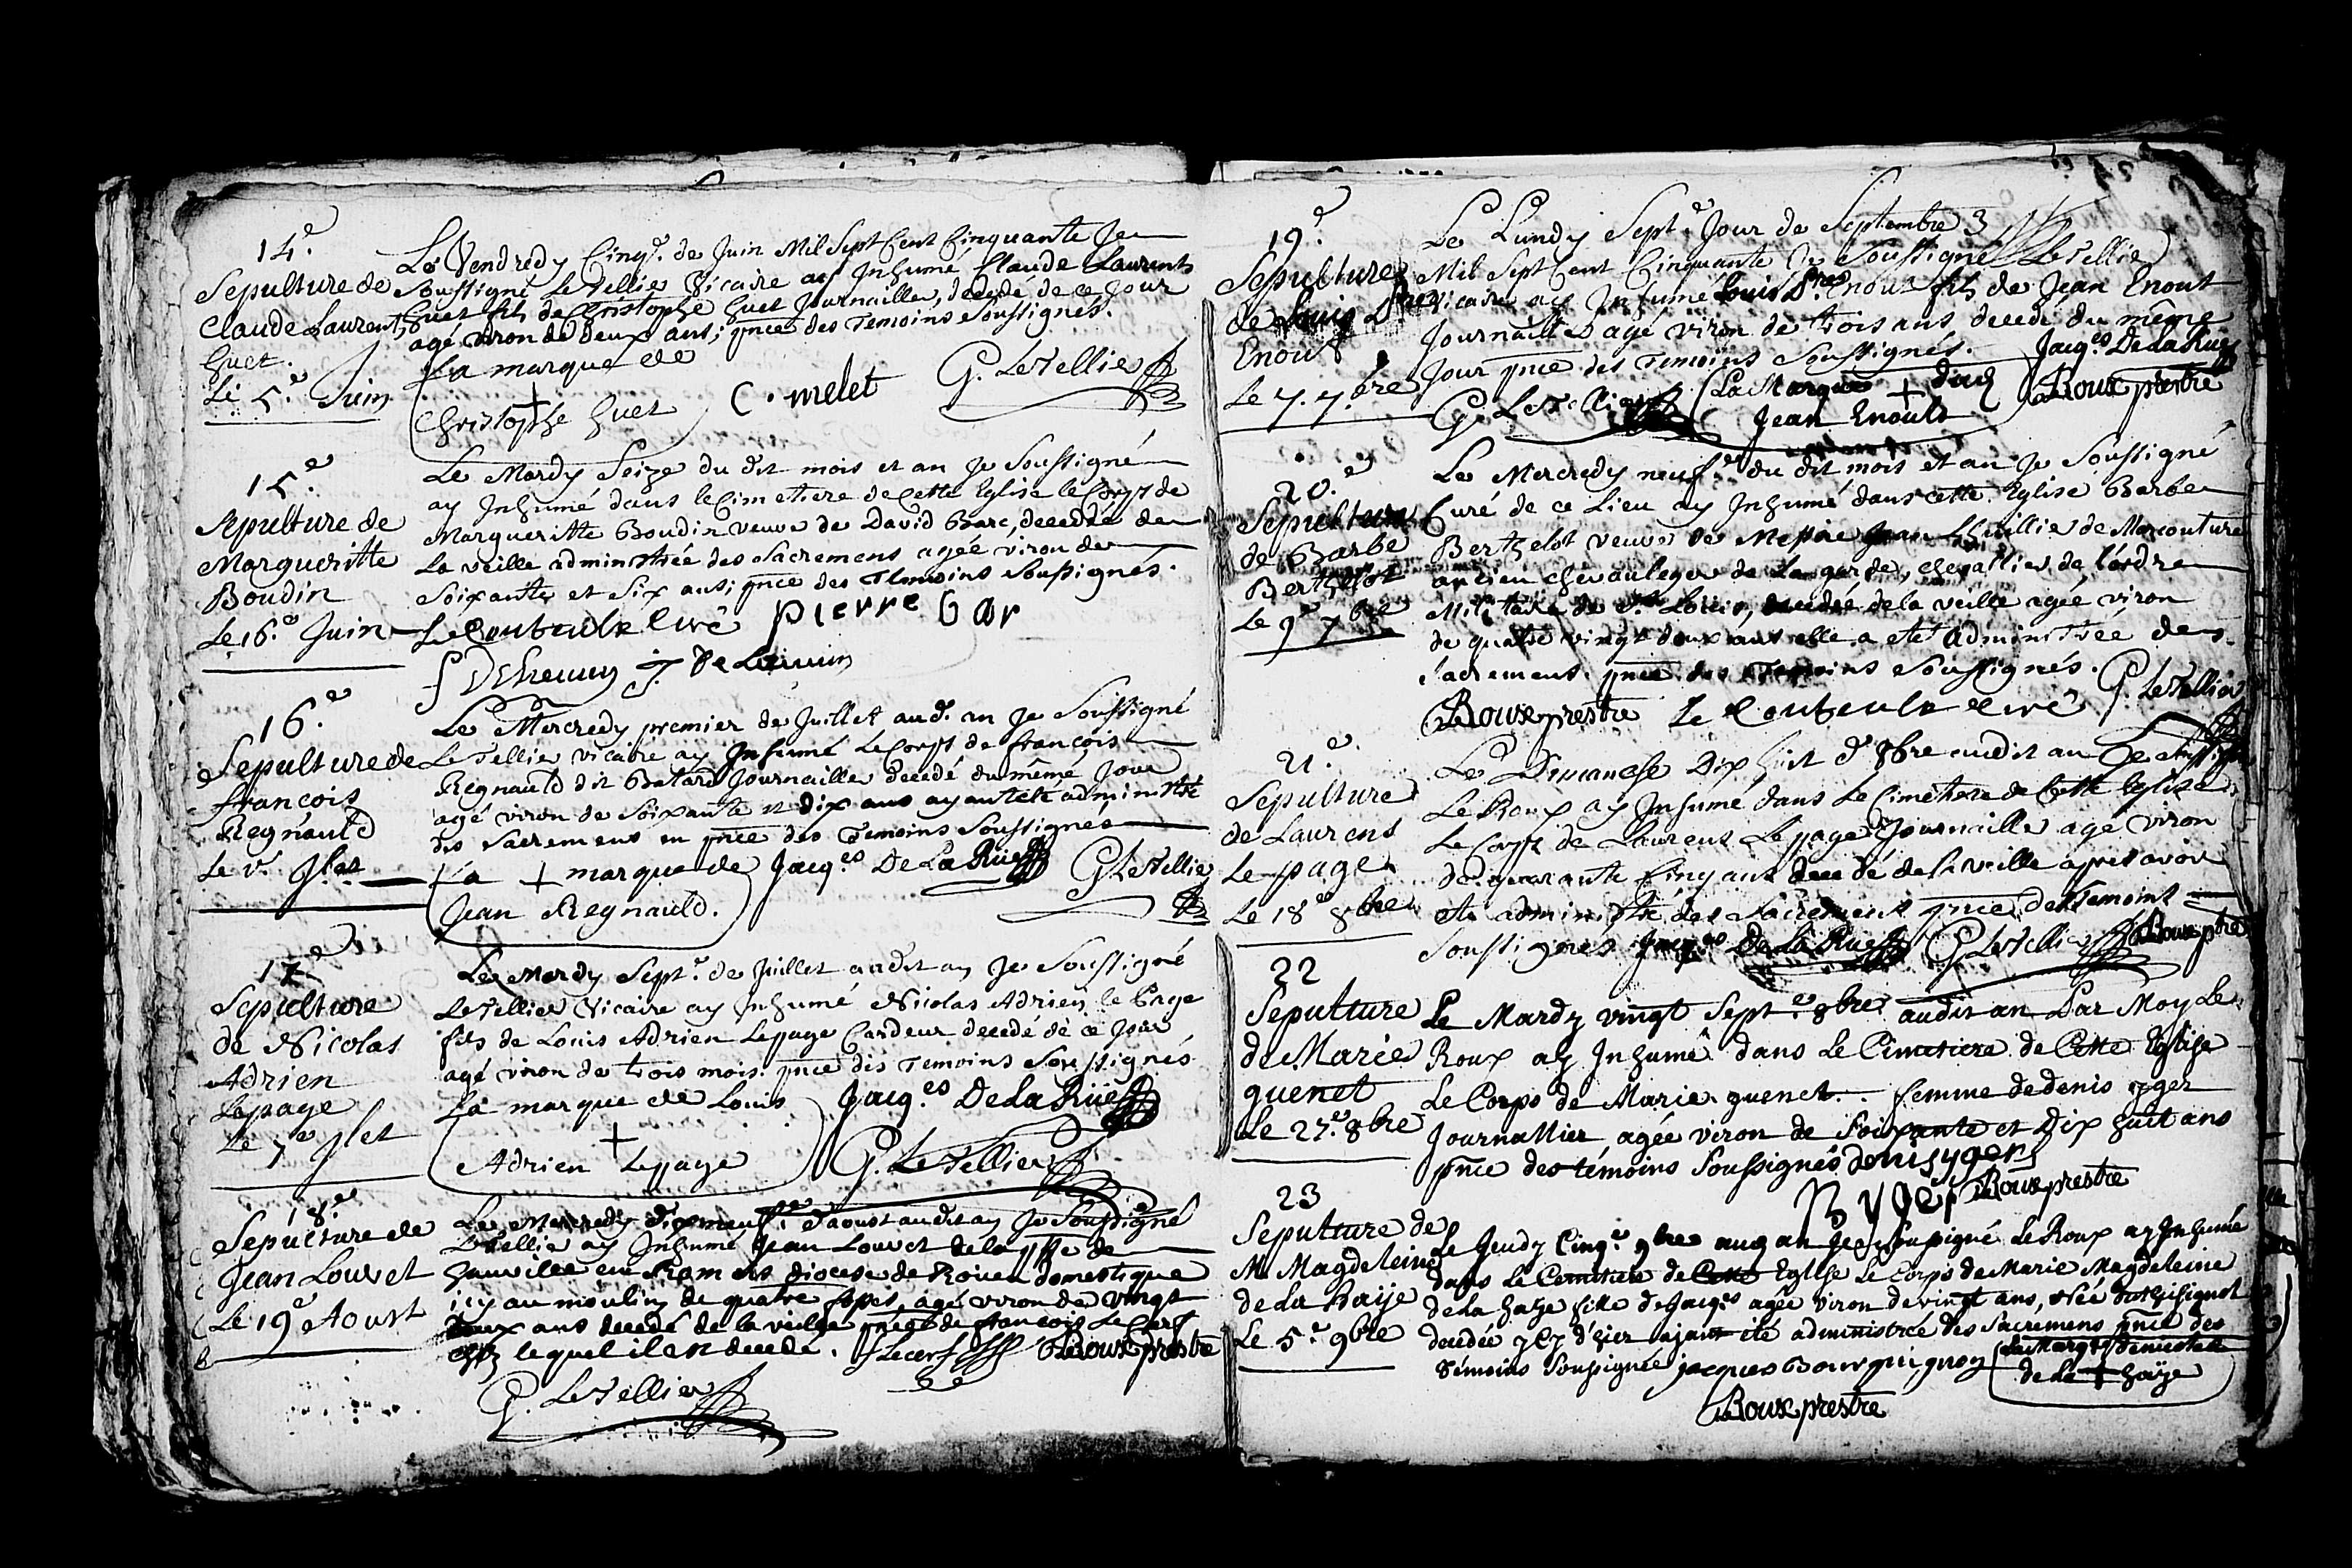 14.e
Sepulture de
Claude Laurents
huet.
Le 5.e Juin
Le Vendredy Cinq.e de Juin Mil Sept Cent Cinquante Je
Soussigné Le Tellier Vicaire ay Inhumé Claude Laurents
huet fils de Christophe huet Journaillier, decedé de ce Jour
agé viron de deux ans; pnce des Temoins Soussignés.
La marque de
Christophe huet
C. melet
G. LeTellier
15.e
Sepulture de
Margueritte
Boudin
Le 16.e Juin
Le Mardy Seize du dit mois et an Je Soussigné
ay Inhumé dans le Cimetiere de Cette Eglise le Corps de
Margueritte Boudin veuve de David Barc, decedée de
la veille administrée des Sacremens agée viron de
Soixante et Six ans; pnce des Temoins Soussignés.
Le Couteulx Curé pierre bar
16.e
Sepulture de
francois
Regnauld
Le 1.er Jlet
Le Mercredy premier de Juillet aud. an Je Soussigné
Le Tellier vicaire ay Inhumé Le Corps de françois
Regnauld dit Batard Journaillier decedé du même Jour
agé viron de Soixante et dix ans ayant eté administré
des Sacremens en pnce des Temoins Soussignés
La + marque de
Jean Regnauld.
Jacq.es De La Rüe
G LeTellier
17.e
Sepulture
de Nicolas
Adrien
Lepage
Le 7.e Jlet
Le Mardy Sept.e de Juillet audit an Je Soussigné
LeTellier Vicaire ay Inhumé Nicolas Adrien le Page
fils de Louis Adrien Lepage Cardeur decedé de ce Jour
agé viron de trois mois. pnce des Temoins Soussignés
La marque de Louis
+
Adrien Lepage
Jacq.es De La Rüe
G. LeTellier
18.e
Sepulture de
Jean Louvet
Le 19.e Aoust
Le Mercredy dixneuf.e d'aoust audit an Je Soussigné
LeTellier ay Inhumé Jean Louvet de la psse de
hauville en Romois diocese de Rouen domestique
icy au moulin de quatre fosses, agé viron de vingt
deux ans decedé de la veille pnce de francois Le Cerf
chez lequel il est decedé. f Lecerf Roux prestre
G. LeTellier
19.e
Sepulture
de Louis D.re
Enout
Le 7. 7.bre
Le Lundy Sept.e Jour de Septembre
Mil Sept Cent Cinquante Je Soussigné LeTellier
vicaire ay Inhumé Louis D.re Enout fils de Jean Enout
Journaillier agé viron de trois ans decedé du même
Jour pnce des Temoins Soussignés. Jacq.es De La Rüe
G. LeTellier La Marque + du
Jean Enoult
Roux prestre
20.e
Sepulture
de Barbe
Berthelot
Le 9.e 7.bre
Le Mercredy neuf.e du dit mois et an Je Soussigné
Curé de ce Lieu ay Inhumé dans cette Eglise Barbe
Berthelot veuve de Messire Jean Lhuillier de Marcouture
ancien chevauleger de la garde, chevallier de l'ordre
Militaire de St. Louis, decedée de la veille agée viron
de quatre vingt deux ans elle a eté administrée des
Sacremens. pnce des Temoins Soussignés. G. LeTellier
Roux prestre Le Couteulx Curé
21.e
Sepulture
de Laurens
Lepage
Le 18.e 8.bre
Le Dimanche Dix huit d'8bre audit an Je Soussigné
Le Roux ay Inhumé dans Le Cimetiere de Cette Eglise
Le Corps de Laurens Lepage Journaillier agé viron
de quarante Cinq ans decedé de la veille apres avoir
eté administré des Sacremens pnce des Temoins
Soussignés Jacq.es De La Rüe G LeTellier Roux ptre
22
Sepulture
de Marie
guenet
Le 27.e 8bre
Le Mardy vingt Sept.e 8bre audit an Par Moy Le
Roux ay Inhumé dans Le Cimetiere de Cette Eglise
Le Corps de Marie guenet. femme de denis yger
Journallier agée viron de Soixante et Dix huit ans
pnce des témoins Soussignés denis yger
Roux prestre
23
Sepulture de
M Magdeleine
de La haije
Le 5.e 9bre
Le Jeudy Cinq.e 9bre aud an Je Soussigné Le Roux ay Inhumé
dans Le Cemitiere de Cette Eglise Le Corps de Marie Magdeleine
de La haye fille de Jacq.es agée viron de vingt ans,
decedée d'hier ajant été administrée des Sacremens pnce des
témoins Soussignés jacques Bourguignon
La Marque
de La + haije
Roux prestre